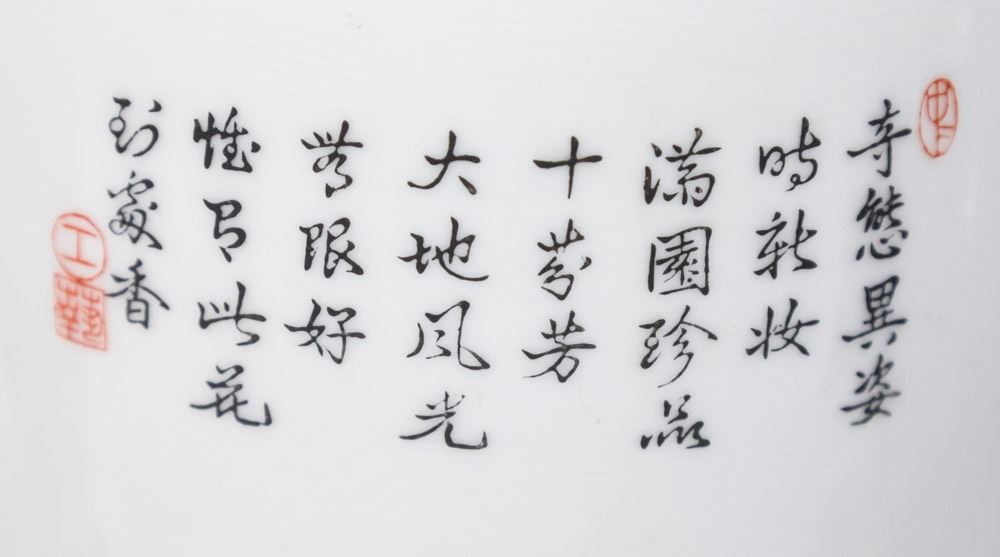 奇態異姿
時新妝
滿園珍品
十芬芳
大地風光
無限好
惟有此花
到處香
工